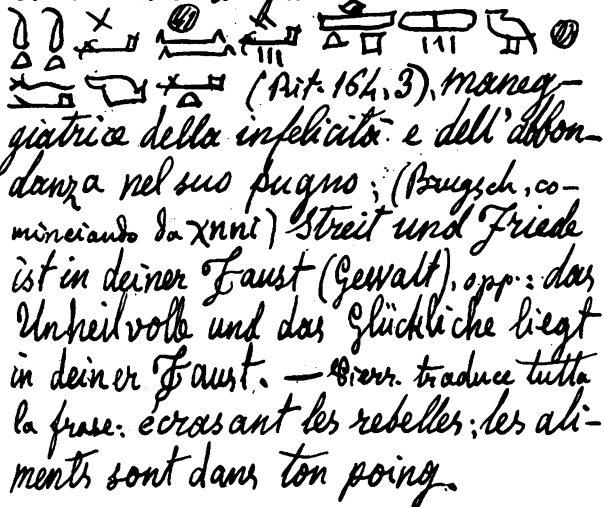 (Rit. 164, 3), maneg-
giatrice della infelicità e dell'abbon-
danza nel suo pugno; (Brugsch, co-
minciando da χnni) Streit und Friede
ist in deiner Faust (Gewalt), opp.: das
Unheilvolle und das Glückliche liegt
in deiner Faust. — Pierr. traduce tutta
la frase: écrasant les rebelles; les ali-
ments sont dans ton poing.